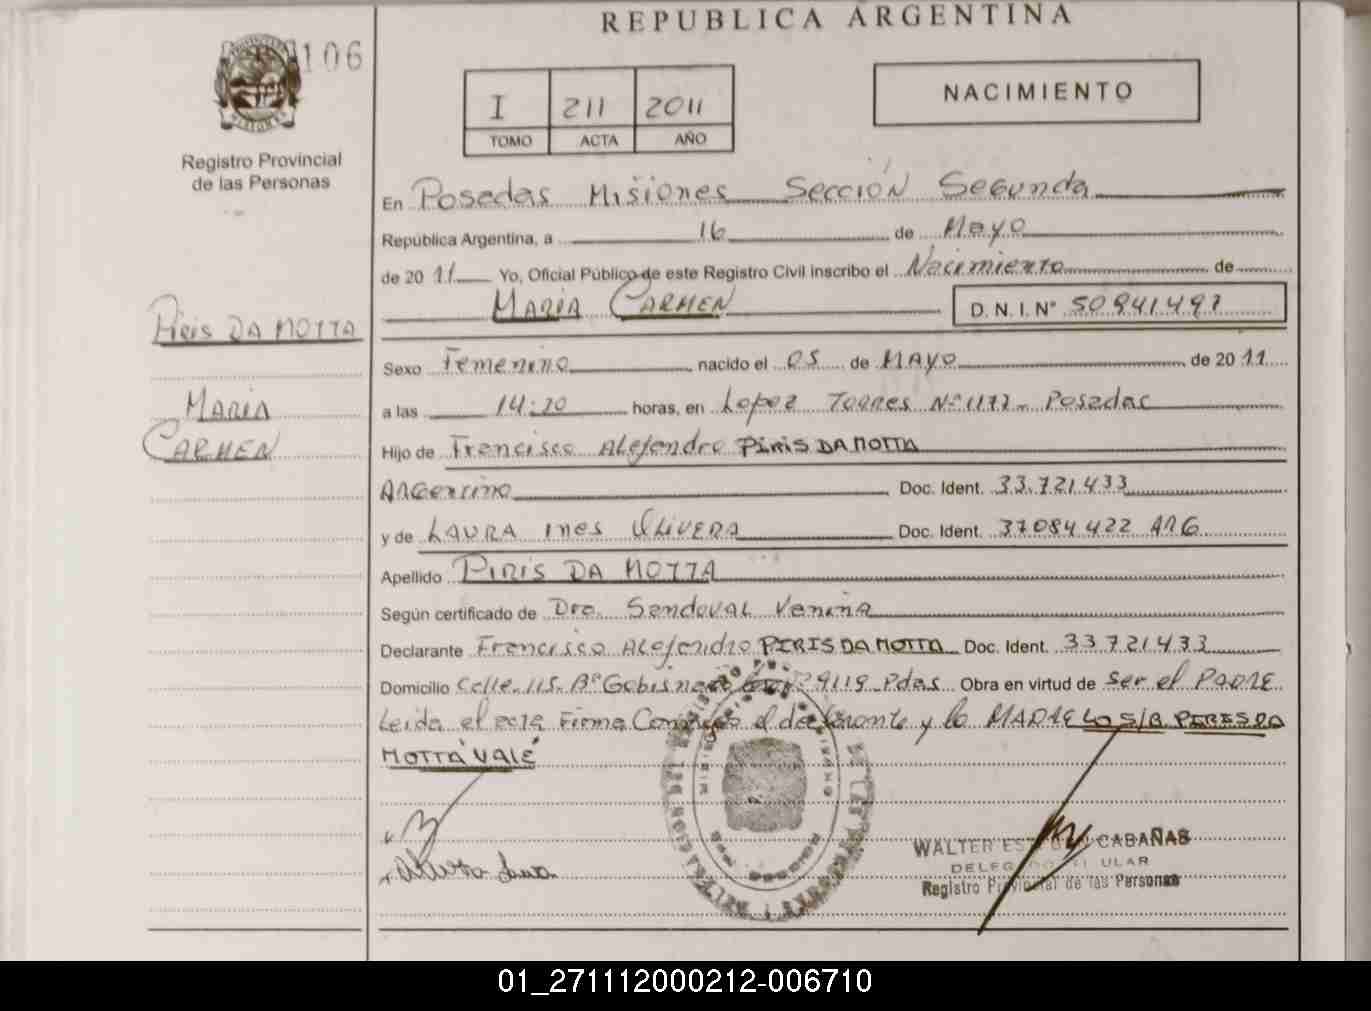 REPUBLICA ARGENTINA
106
Registro Provincial
de las Personas
I 211 2011
TOMO ACTA AÑO
NACIMIENTO
En Posadas Misiones Sección Segunda
República Argentina, a 16 de Mayo
de 20 11 Yo, Oficial Público de este Registro Civil inscribo el Nacimiento de
MARIA CARMEN D. N. I. Nº 50941497
Piris DA MOTTA
MARIA
CARMEN
Sexo Femenino nacido el 05 de MAYO de 20 11
a las 14:20 horas, en Lopez Torres Nº 1177- Posadas
Hijo de Francisco Alejandro PIRIS DA MOTTA
Argentino Doc. Ident. 33.721.433
y de LAURA Ines Olivera Doc. Ident. 37084422 ARG
Apellido PIRIS DA MOTTA
Según certificado de Dra. Sandoval
Declarante Francisco Alejandro PIRIS DA MOTTA Doc. Ident. 33721433
Domicilio Calle 115. Bº 9119 Pdas Obra en virtud de ser el PADRE
Leida el acta Firma el declarante y la MADRE LO S/B PIRIS DA
MOTTA "VALE"
WALTER CABAÑAS
Registro Provincial de las Personas
01_271112000212-006710